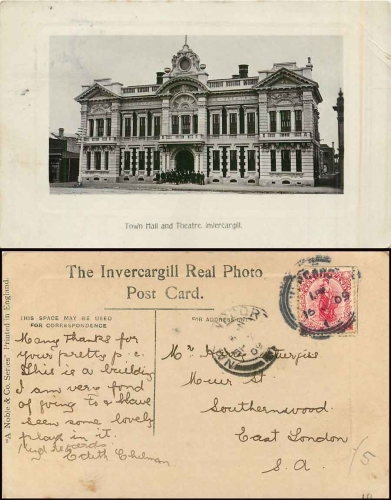 Town Hall and Theatre, Invercargill.
The Invercargill Real Photo
Post Card.
THIS SPACE MAY BE USED
FOR CORRESPONDENCE
FOR ADDRESS ONLY
"A Noble & Co. Series" Printed in England.
Many thanks for
your pretty p.c.
This is a building
I am very fond
of going to & have
seen some lovely
plays in it.
Kind regards
Edith
Mr
Muir St
Southernwood
East London
S.A.
09